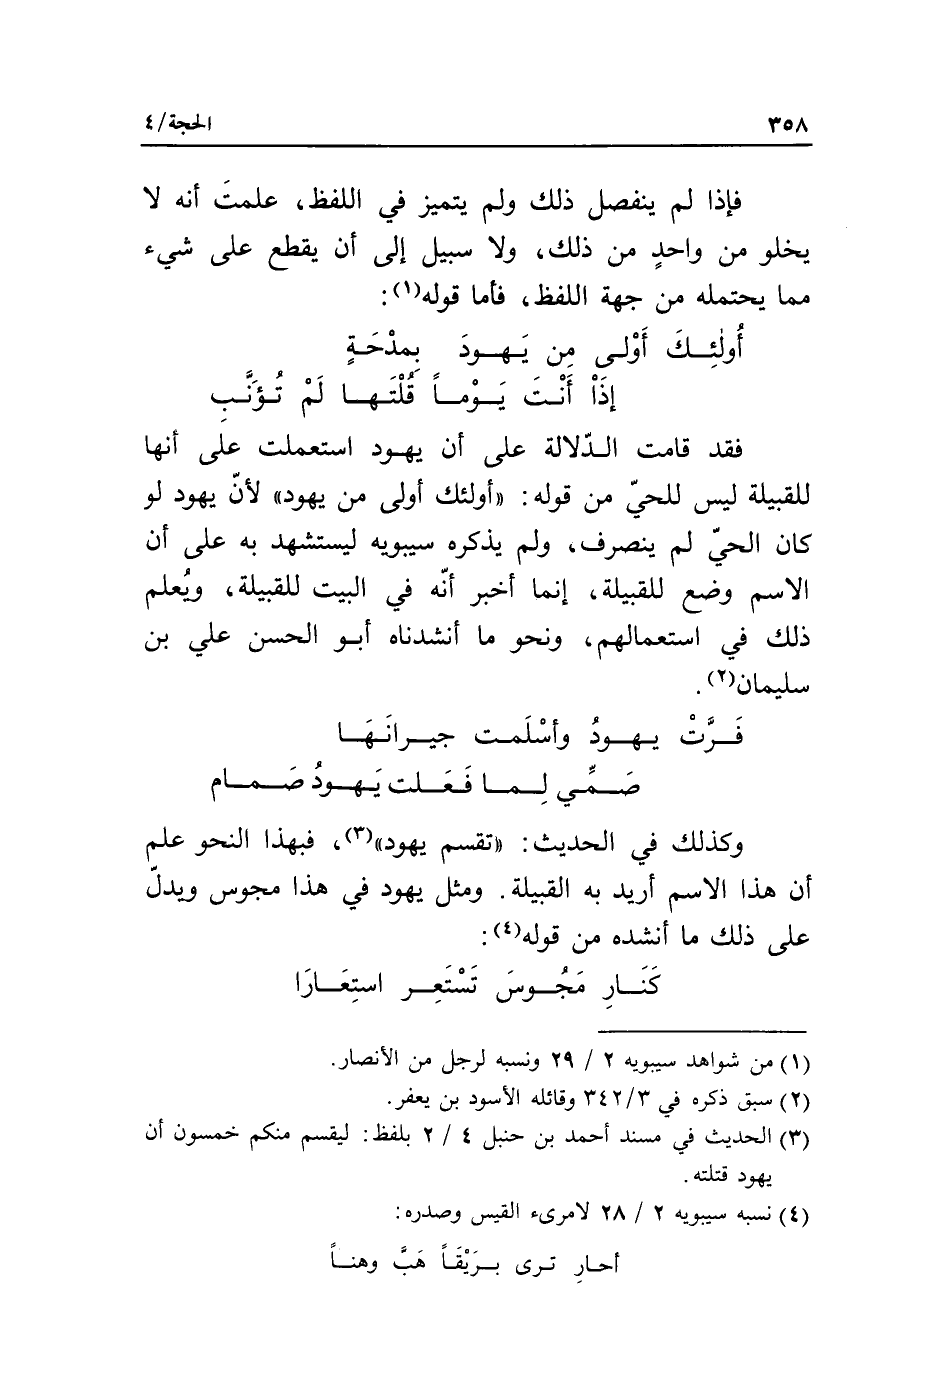 ٣٥٨
الحجة/٤
فإذا لم ينفصل ذلك ولم يتميز في اللفظ، علمتَ أنه لا
يخلو من واحدٍ من ذلك، ولا سبيل إلى أن يقطع على شيء
مما يحتمله من جهة اللفظ، فأما قوله(١):
أُولَٰئِكَ أَوْلى مِن يَهودَ بِمِدْحَةٍ
إِذَاْ أَنْتَ يَوْماً قُلْتَها لَمْ تُؤَنَّبِ
فقد قامت الدّلالة على أن يهود استعملت على أنها
للقبيلة ليس للحيّ من قوله: «أولئك أولى من يهود» لأنّ يهود لو
كان الحيّ لم ينصرف، ولم يذكره سيبويه ليستشهد به على أن
الاسم وضع للقبيلة، إنما أخبر أنّه في البيت للقبيلة، ويُعلم
ذلك في استعمالهم، ونحو ما أنشدناه أبو الحسن علي بن
سليمان(٢).
فَرَّتْ يهودُ وأسْلَمت جيرانَهَا
صَمِّي لِما فَعَلت يَهودُ صَمام
وكذلك في الحديث: «تقسم يهود»(٣)، فبهذا النحو علم
أن هذا الاسم أريد به القبيلة. ومثل يهود في هذا مجوس ويدلّ
على ذلك ما أنشده من قوله(٤):
كَنَارِ مَجُوسَ تَسْتَعِر استِعَارَا
(١) من شواهد سيبويه ٢ / ٢٩ ونسبه لرجل من الأنصار.
(٢) سبق ذكره في ٣٤٢/٣ وقائله الأسود بن يعفر.
(٣) الحديث في مسند أحمد بن حنبل ٤ / ٢ بلفظ: ليقسم منكم خمسون أن
يهود قتلته.
(٤) نسبه سيبويه ٢ / ٢٨ لامرىء القيس وصدره:
أحارِ ترى بريْقَاً هَبَّ وهناً